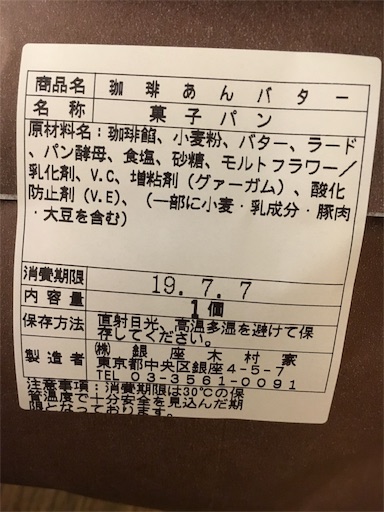 商品名 珈琲あんバター
名称 菓子パン
原材料名：珈琲餡、小麦粉、バター、ラード
、パン酵母、食塩、砂糖、モルトフラワー／
乳化剤、V.C、増粘剤（グァーガム）、酸化
防止剤（V.E)、（一部に小麦・乳成分・豚肉
・大豆を含む）
消費期限 19.7.7
内容量 1個
保存方法 直射日光、高温多湿を避けて保
存してください。
製造者 ㈱銀座木村家
東京都中央区銀座4-5-7
TEL 03-3561-0091
注意事項：消費期限は30℃の保
管温度で十分安全を見込んだ期
限となっております。